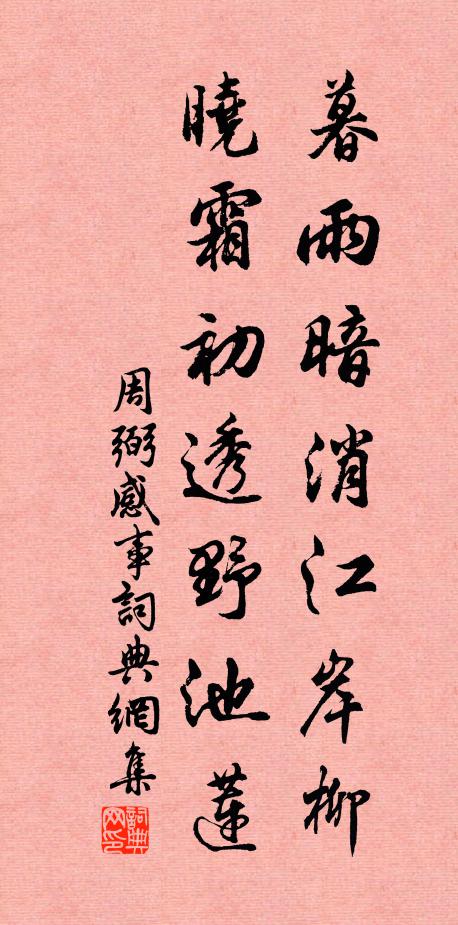 暮雨暗消江岸柳
曉霜初透野池蓮
周弼感事詞典網集
詞典网印